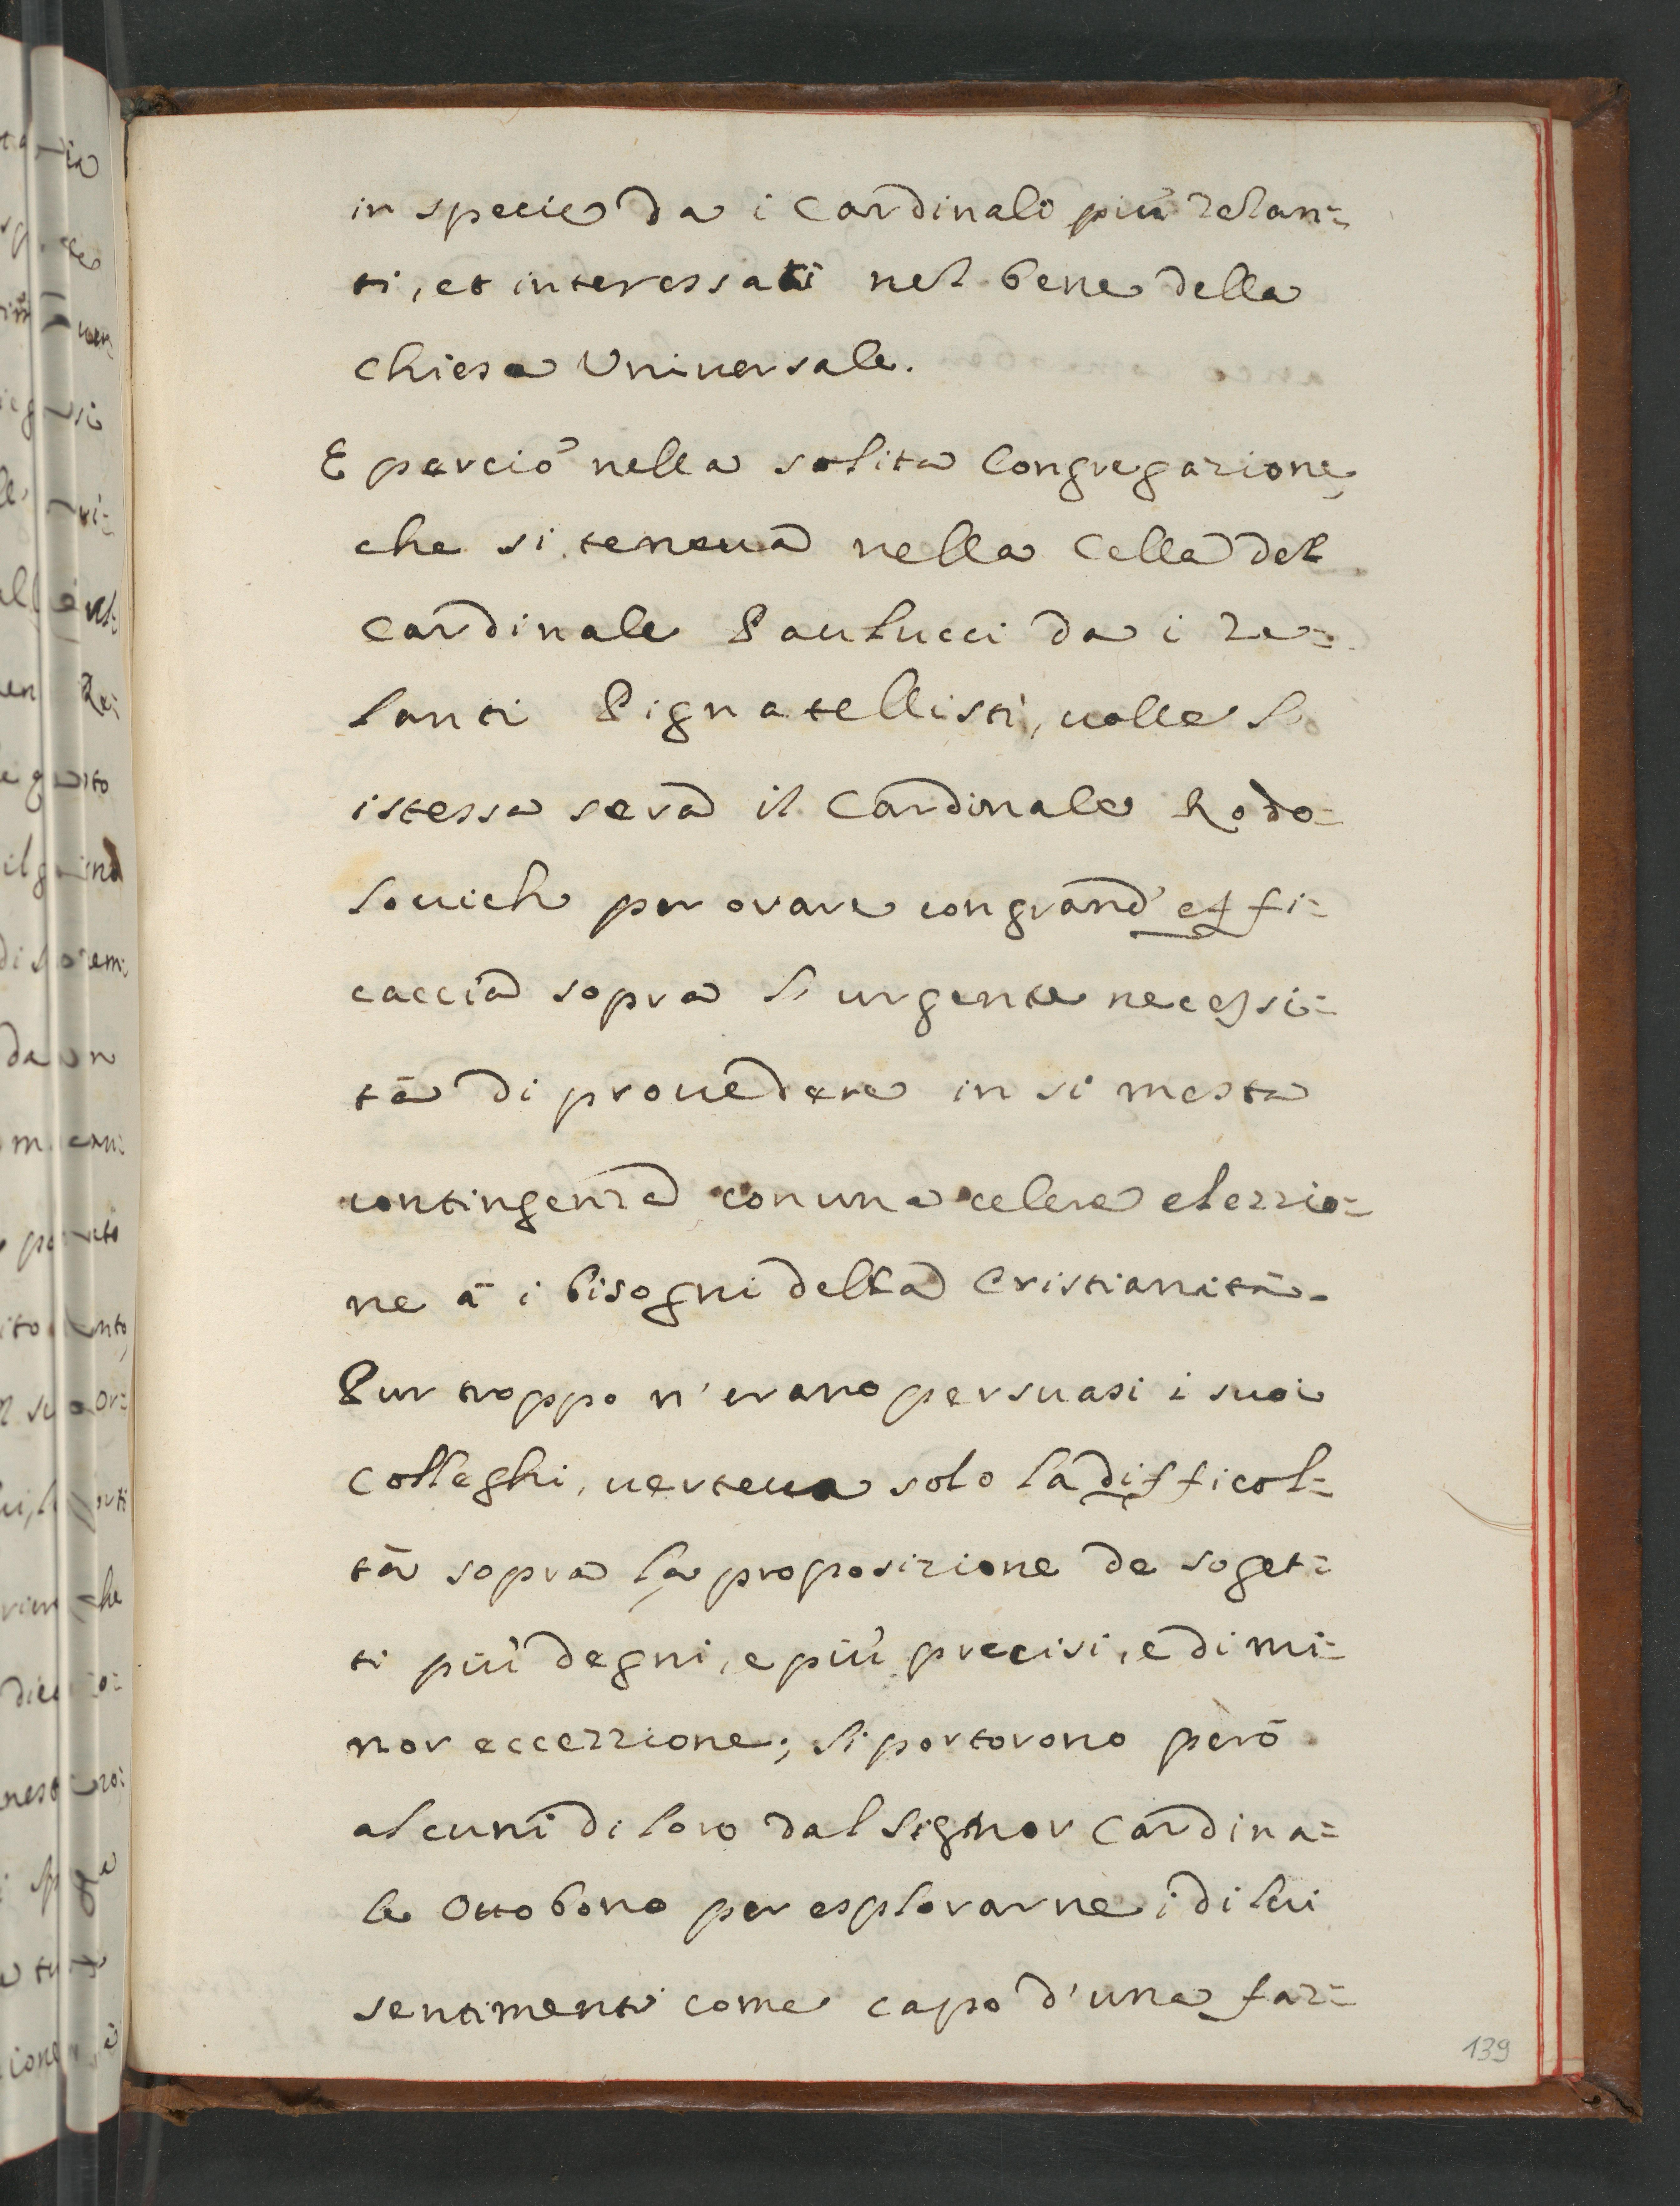 in specie da i Cardinali più zelan=
ti, et interessati nel bene della
Chiesa Universale.
E perciò nella solita Congregazione
che si teneua nella Cella del
Cardinale Paulucci da i ze=
lanti Pignatellisti, uolle l'
istessa sera il Cardinale Rado=
louich per orare con grand' effi=
caccia sopra l'urgente necessi=
tà di prouedere in si mesta
contingenza con una celere elezzio=
ne à i bisogni della Cristianità.
Pur troppo n'erano persuasi i suoi
Colleghi, uerteua solo la difficol=
tà sopra la proposizione de soget=
ti più degni, e più precisi, e di mi=
nor eccezzione; si portorono però
alcuni di loro dal Signor Cardina=
le Ottobono per esplorarne i di lui
sentimenti come capo d'una faz=
139